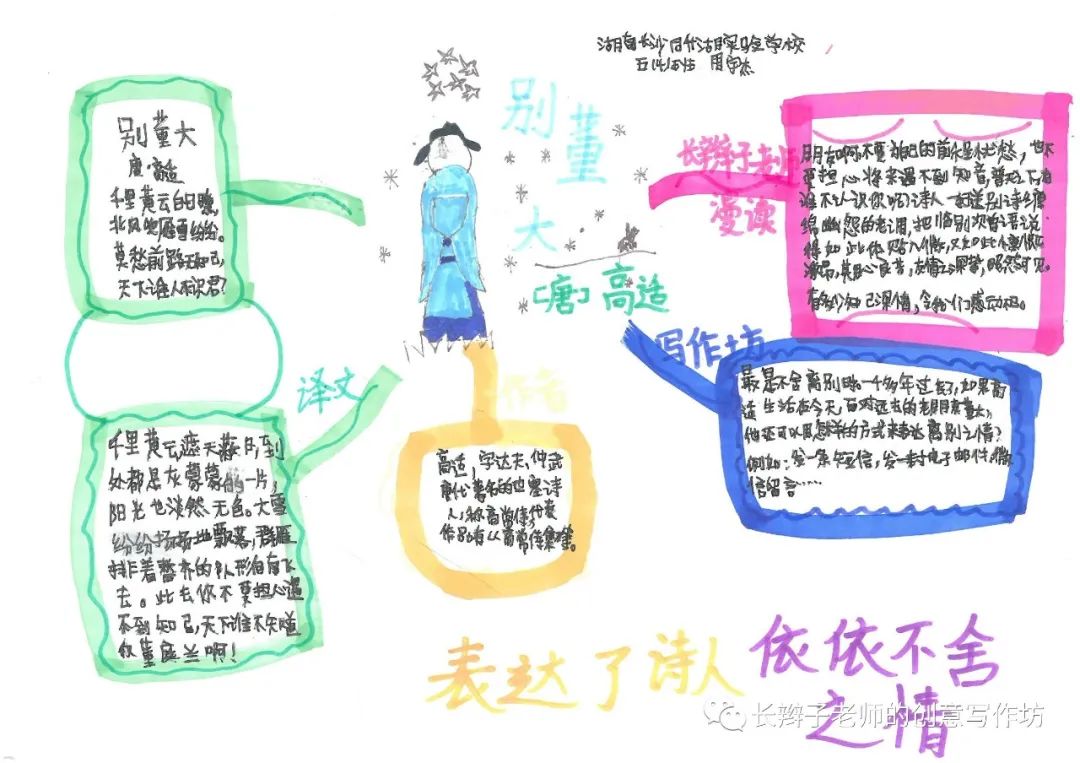 别董大
唐 高适
千里黄云白日曛,
北风吹雁雪纷纷。
莫愁前路无知己,
天下谁人不识君?
译文
千里黄云遮天蔽月,到
处都是灰蒙蒙的一片,
阳光也淡然无色。大雪
纷纷扬扬地飘落,群雁
排着整齐的队形向南飞
去。此去你不要担心遇
不到知己,天下谁不知道
你董庭兰啊!
湖南长沙月湖实验学校
别董大
[唐]高适
作者
高适,字达夫、仲武
唐代著名的边塞诗
人,称高常侍,代表
作品有《高常侍集》等。
长辫子老师
漫读
朋友啊,不要为你的前途忧愁,也不
要担心将来遇不到知音,普天下,有
谁不认识你呢?诗人一扫送别诗缠
绵幽怨的老调,把临别赠语说
得如此体贴入微,又如此
深情,令我们感动极。
写作坊
最是不舍离别时,一千多年过去了,如果高
适生活在今天,面对远去的老朋友董大,
他还可以用怎样的方式来表达离别之情?
例如:发一条短信,发一封电子邮件,微
信留言……
表达了诗人
依依不舍
之情
长辫子老师的创意写作坊